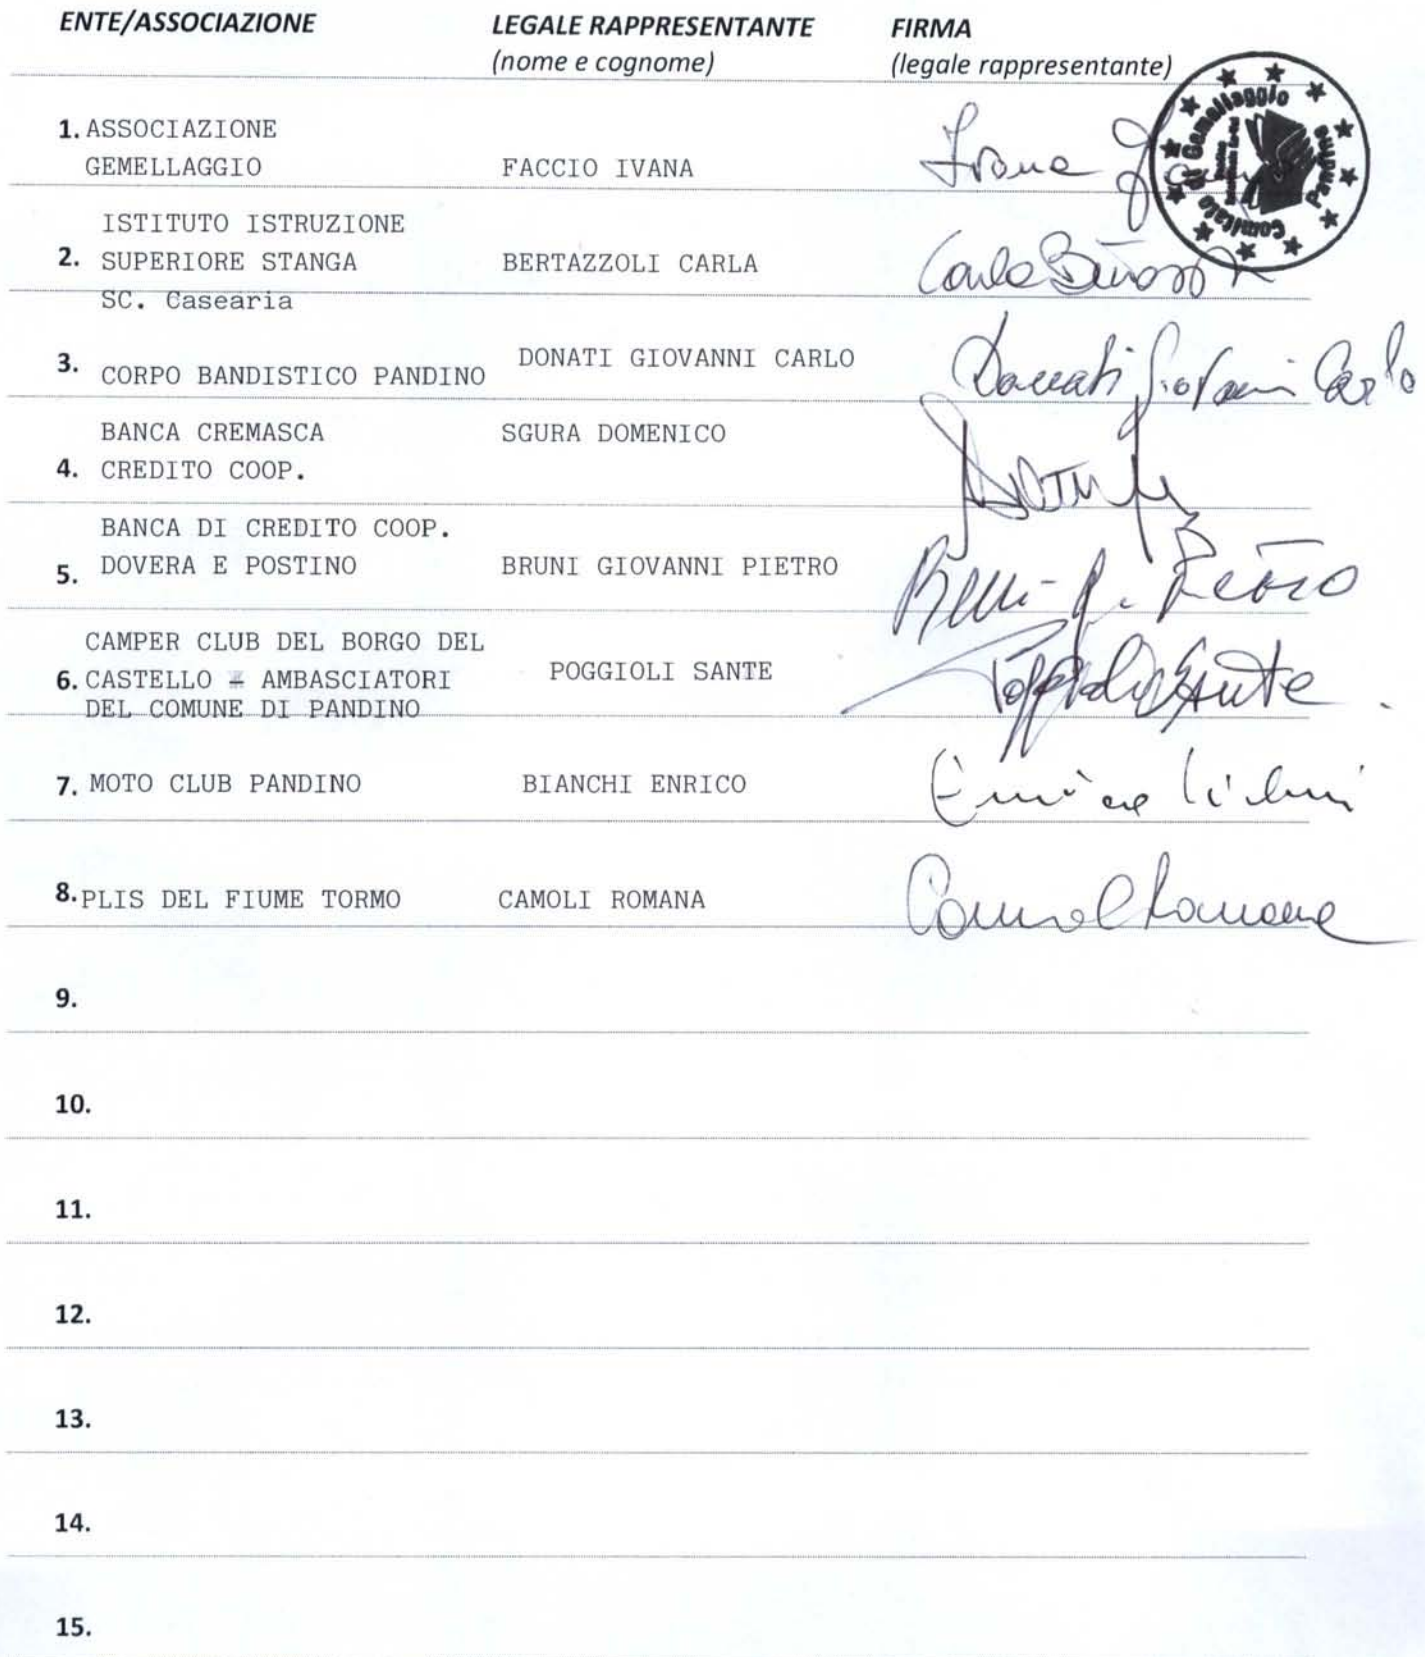 ENTE/ASSOCIAZIONE LEGALE RAPPRESENTANTE FIRMA
(nome e cognome) (legale rappresentante)
1. ASSOCIAZIONE
GEMELLAGGIO FACCIO IVANA Ivana
Comitato di Gemellaggio Pandino
ISTITUTO ISTRUZIONE
2. SUPERIORE STANGA BERTAZZOLI CARLA Carla
SC. Casearia
3. CORPO BANDISTICO PANDINO DONATI GIOVANNI CARLO Donati Giovanni Carlo
BANCA CREMASCA SGURA DOMENICO
4. CREDITO COOP.
BANCA DI CREDITO COOP.
5. DOVERA E POSTINO BRUNI GIOVANNI PIETRO Bruni G. Pietro
CAMPER CLUB DEL BORGO DEL
6. CASTELLO - AMBASCIATORI POGGIOLI SANTE Poggioli Sante
DEL COMUNE DI PANDINO
7. MOTO CLUB PANDINO BIANCHI ENRICO Enrico Bianchi
8. PLIS DEL FIUME TORMO CAMOLI ROMANA Camoli Romana
9.
10.
11.
12.
13.
14.
15.